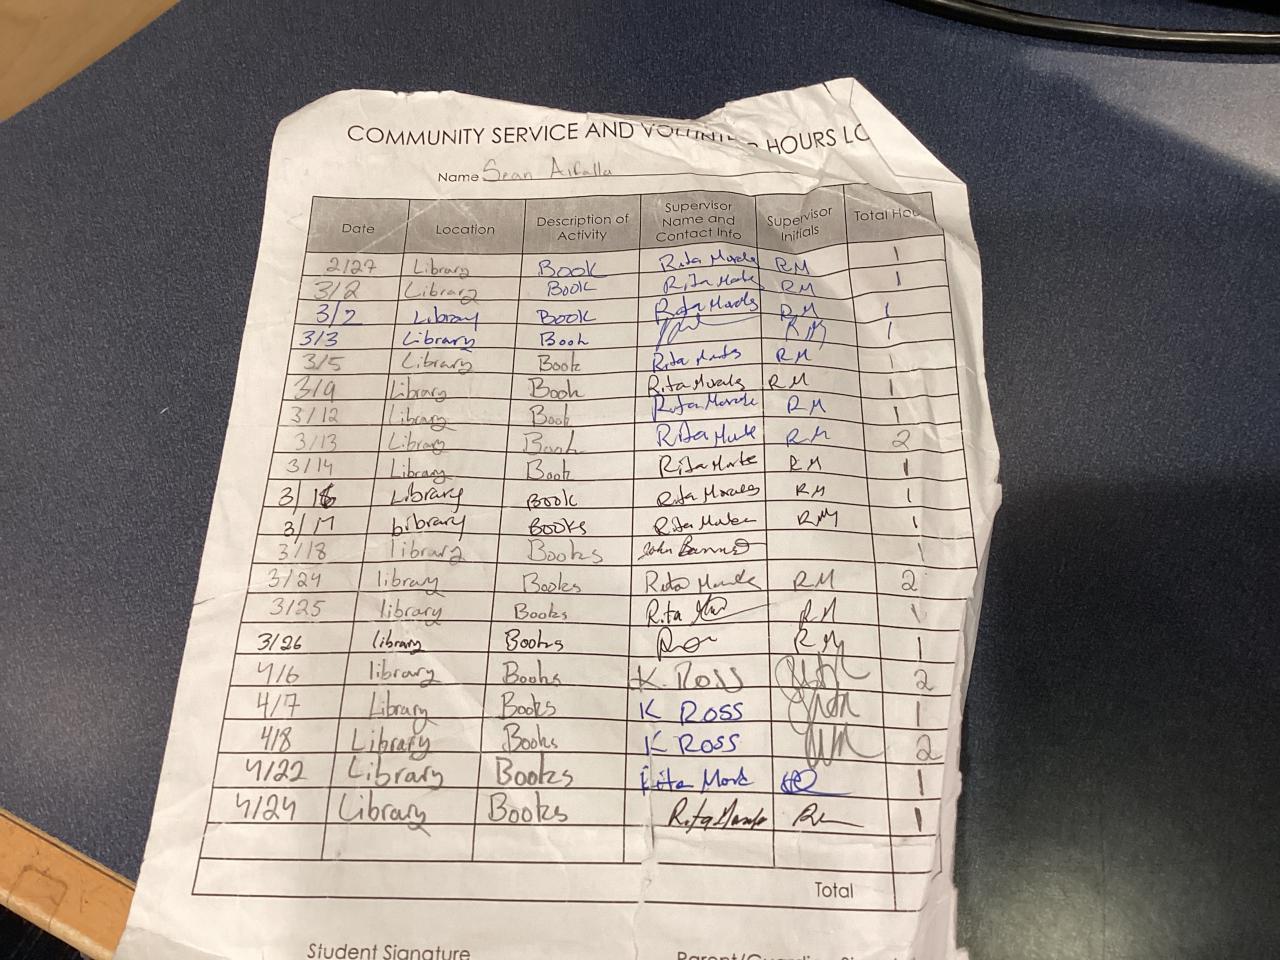 COMMUNITY SERVICE AND VOLUNTEER HOURS LO
Name Sean
Date Location Description of Activity Supervisor Name and Contact Info Supervisor Initials Total Hou
2/27 Library Book Rita Morale RM 1
3/2 Library Book Rita RM 1
3/2 Library Book Rita Morales RM 1
3/3 Library Book RM 1
3/5 Library Book Rita RM 1
3/9 Library Book Rita Morales RM 1
3/12 Library Book Rita Morale RM 1
3/13 Library Book Rita RM 2
3/14 Library Book Rita RM 1
3/16 Library Book Rita Morales RM 1
3/17 Library Books Rita RM 1
3/18 library Books John 1
3/24 library Books Rita RM 2
3/25 library Books Rita RM 1
3/26 library Books RM 1
4/6 library Books K. Ross 2
4/7 Library Books K ROSS 1
4/8 Library Books K ROSS 2
4/22 Library Books Rita 1
4/24 Library Books Rita 1
Total
Student Signature